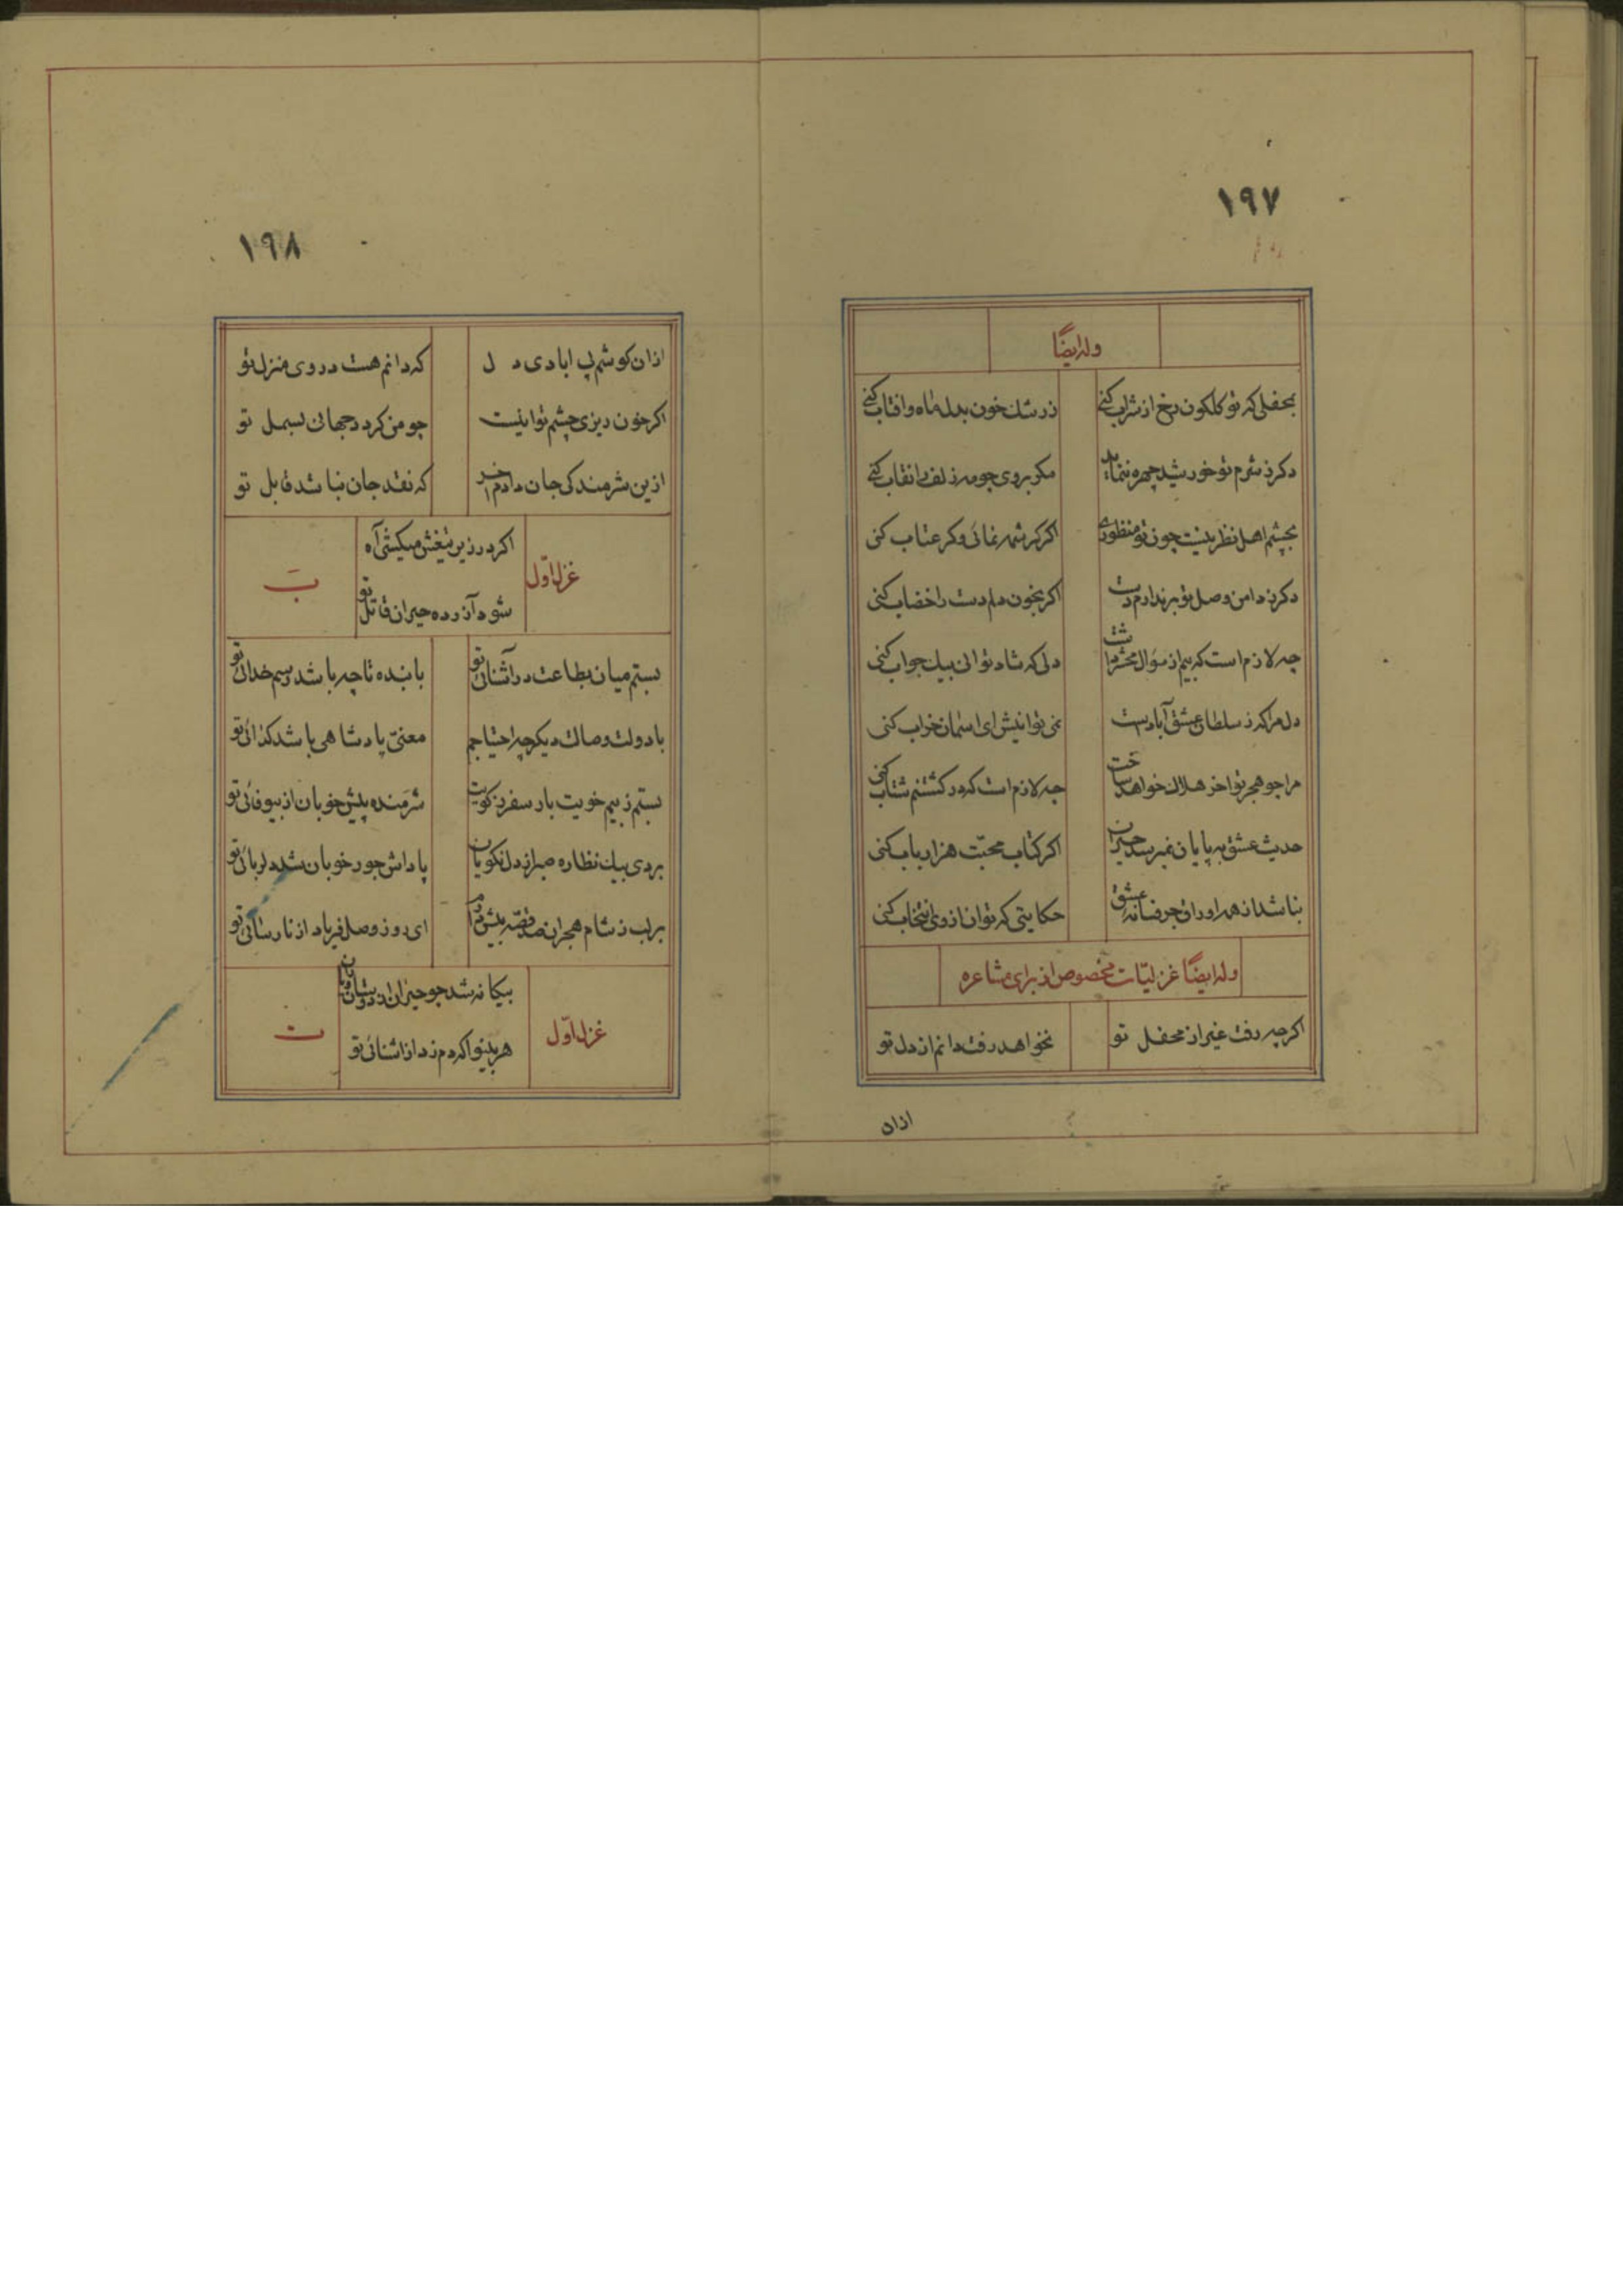 ١٩٧
وله ایضًا
بمحفلی که تو کلکون رخ از شراب کنی
ز رشک خون بدل ماه و افتاب کنی
دکر ز شرم تو خورشید چهره ننماید
مکر بروی چو مه زلف را نقاب کنی
بچشم اهل نظر نیست چون تو منظوری
اکر کرشمه نمائی وکر عتاب کنی
دکر ز دامن وصل تو بر ندارم دست
اکر بخون دلم دست را خضاب کنی
چه لازم است که بیم از سؤال محشر داشت
دلی که شاد توانی بیک جواب کنی
دل مرا که ز سلطان عشق آبادست
نمی توانیش ای اسمان خراب کنی
مرا چو هجر تو اخر هلاک خواهد ساخت
چه لازم است که در کشتنم شتاب کنی
حدیث عشق به پایان نمیرسد حیران
اکر کتاب محبّت هزار باب کنی
نباشد از همه اوراق جز فسانهٔ عشق
حکایتی که توان از وی انتخاب کنی
وله ایضًا غزلیّات مخصوص از برای مشاعره
اکرچه رفت غیر از محفل تو
نخواهد رفت دانم از دل تو
ازان
١٩٨
ازان کوشم پی ابادی دل
که دانم هست در وی منزل تو
اکر خون ریزی چشم تو اینست
چو من کردد جهانی بسمل تو
ازین شرمندکی جان دادم اخر
که نقد جان نباشد قابل تو
غزل اوّل
اکر درزیر تیغش میکشی آه
شود آزرده حیران قاتل تو
ب
بستم میان بطاعت در آشنائی تو
با بنده تا چه باشد رسم خدائی تو
با دولت وصالت دیکر چه احتیاجم
معنیّ پادشاهی باشد کدائی تو
بستم ز بیم خویت بار سفر ز کویت
شرمنده پیش خوبان از بیوفائی تو
بردی بیک نظاره صبر از دل نکویان
پاداش جور خوبان شد دلربائی تو
بر لب ز شام هجران صد قصّه بیش دارم
ای روز وصل فریاد از نارسائی تو
غزل اوّل
بیکانه شد چو حیران از دوستان
هر بینوا که دم زد از اشنائی تو
ت